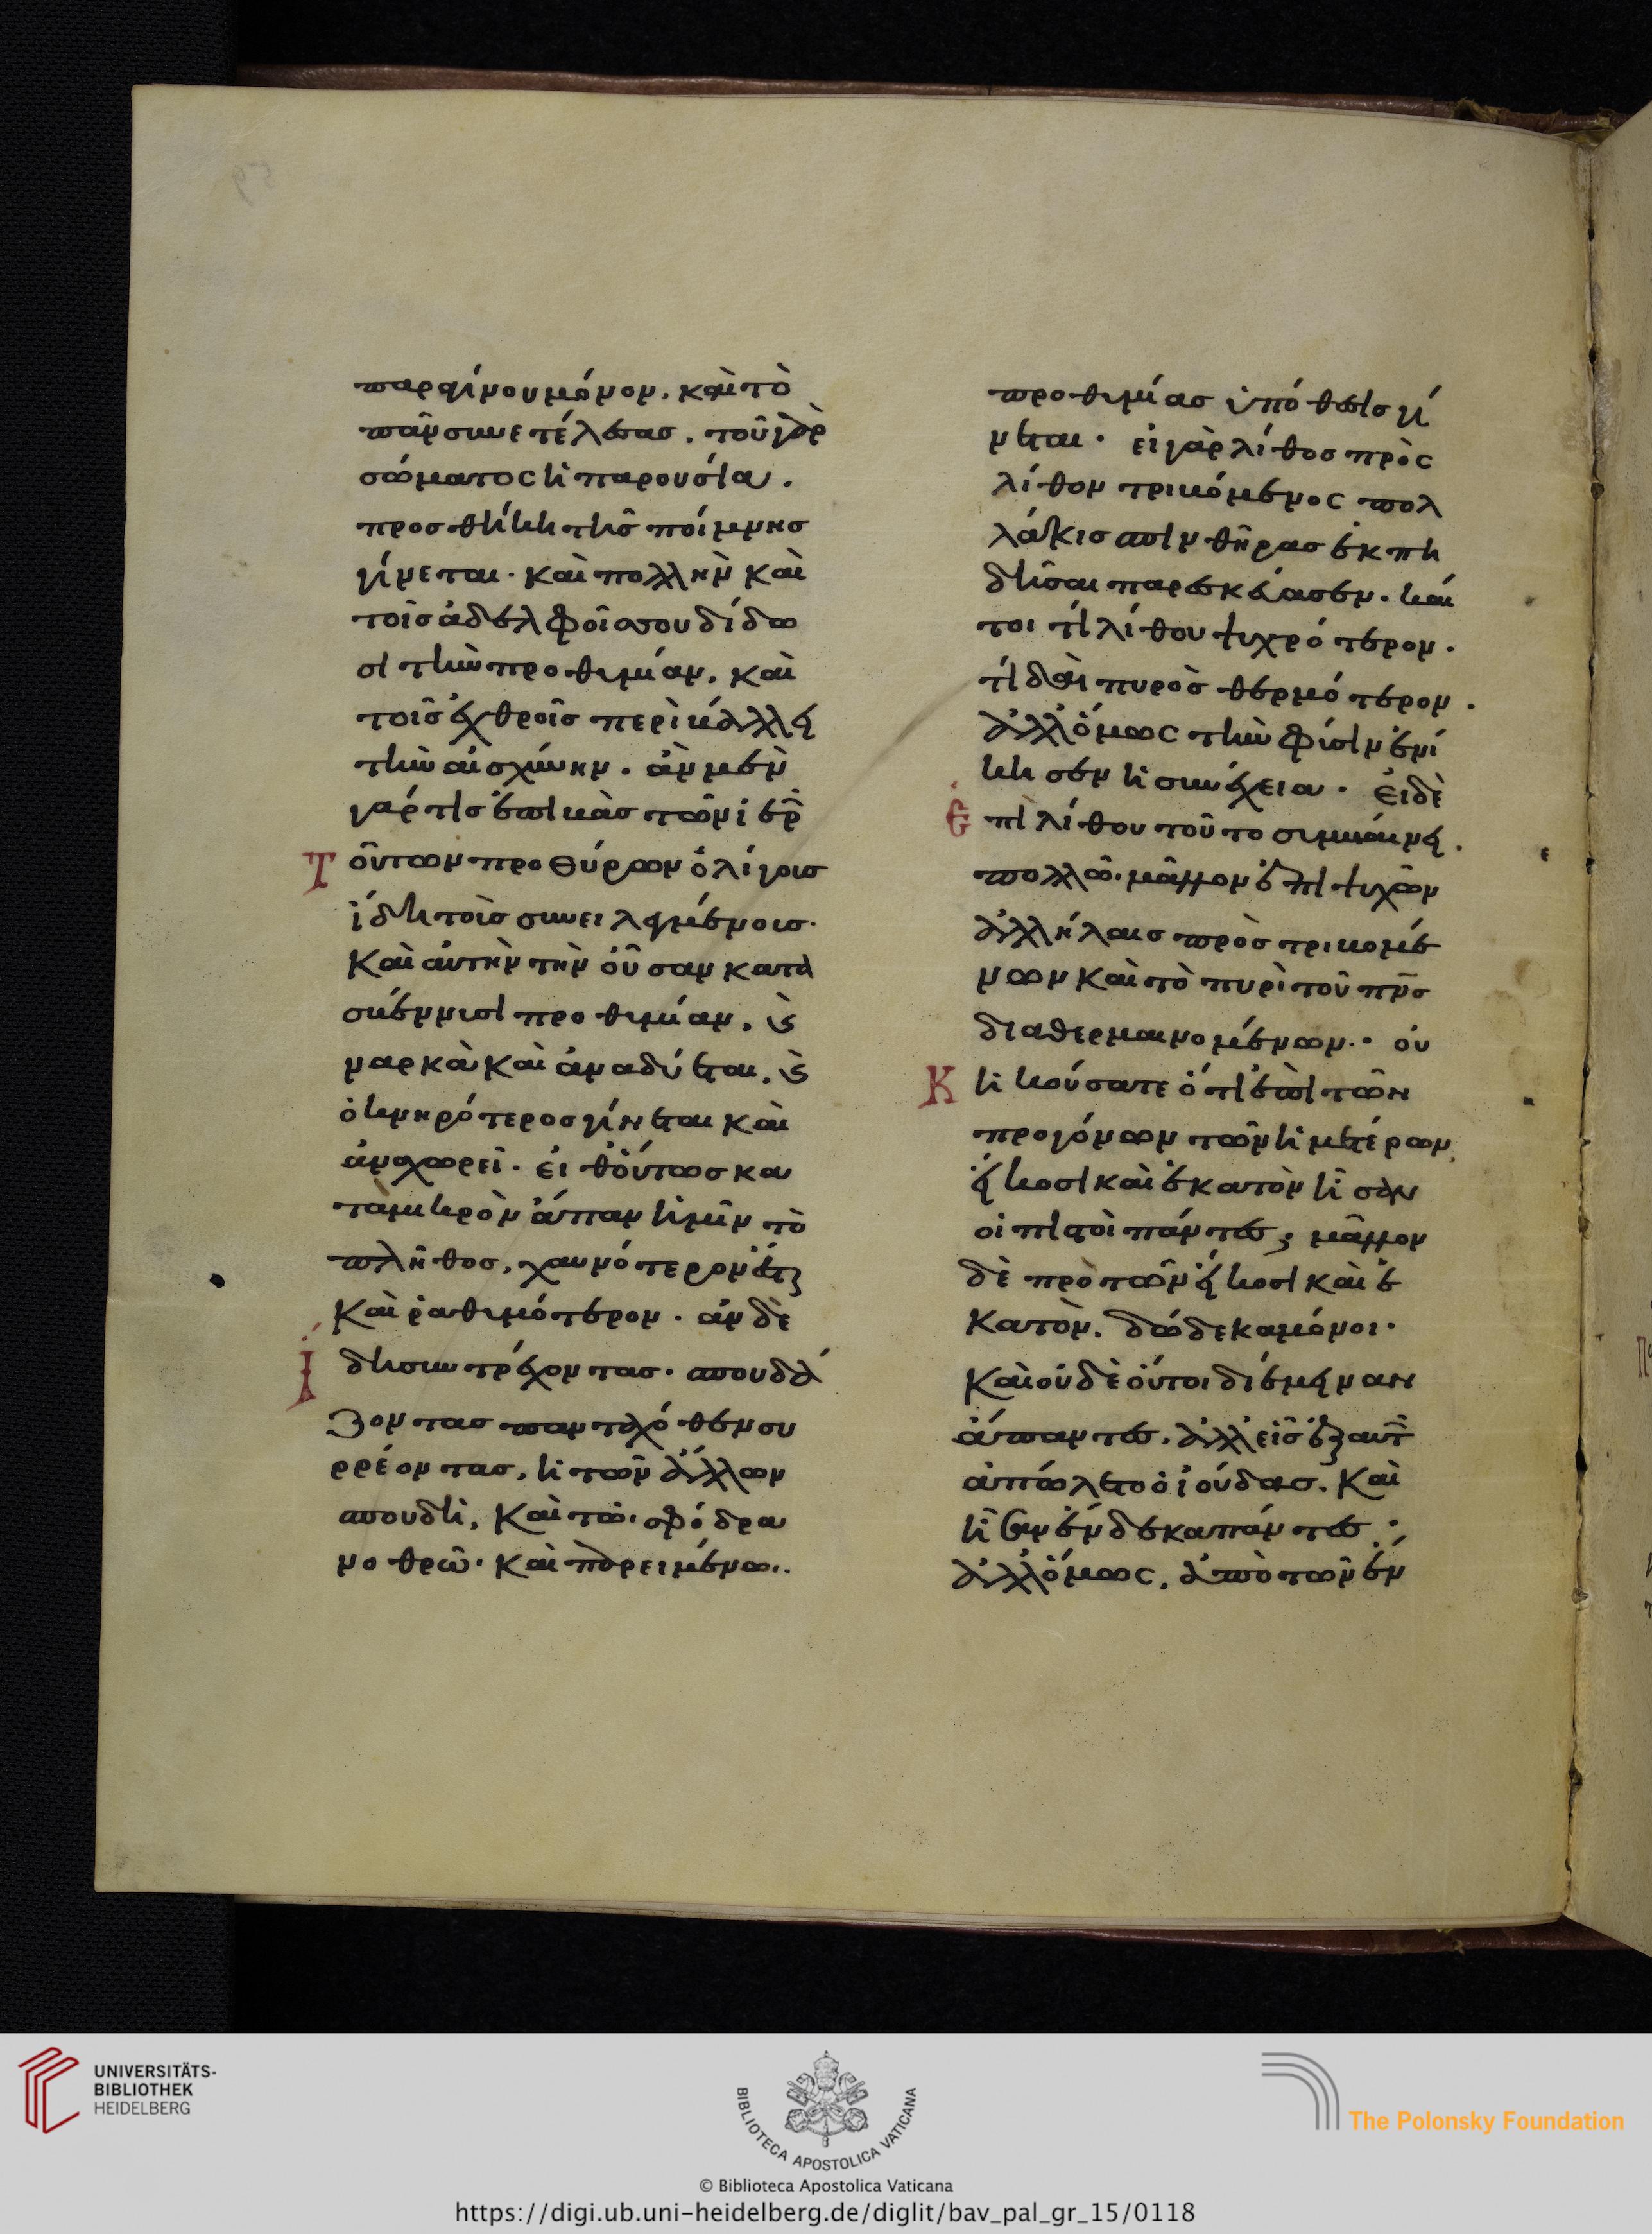 παραγίνου μόνον. καὶ τὸ
πᾶν συνετέλεσας. τοῦ γὰρ
σώματος ἡ παρουσία.
προσθήκη τῆς ποίμνης
γίνεται. καὶ πολλὴν καὶ
τοῖς ἀδελφοῖς σου δίδω
σι τὴν προθυμίαν. καὶ
τοῖς ἐχθροῖς περιβάλλει
τὴν αἰσχύνην. ἀν μὲν
γάρ τις ἐπιβὰς τῶν ἱερῶ
Τούτων προθύρων ὀλίγους
ἴδη τοὺς συνειλεγμένους.
καὶ αὐτὴν τὴν οὖσαν κατα
σβέννυσι προθυμίαν. καὶ
ναρκᾶ καὶ ἀναδύεται. καὶ
ὀκνηρότερος γίνεται καὶ
ἀναχωρεῖ. εἶθ' οὕτως κα
τὰ μικρὸν ἅπαν ἡμῖν τὸ
πλῆθος, χαυνότερον ἔσται
καὶ ῥαθυμότερον. ἀν δὲ
Ἴδη συντρέχοντας. σπουδά
ζοντας πανταχόθεν συ
ρρέοντας. ἡ τῶν ἄλλων
σπουδὴ, καὶ τῶ σφόδρα
νοθρῶ. καὶ παρειμένω.
προθυμίας ὑπόθεσις γί
νεται. εἰ γὰρ λίθος πρὸς
λίθον τριβόμενος πολ
λάκις σπινθῆρας ἐκπη
δῆσαι παρεσκεύασεν. καί
τοι τί λίθου ψυχρότερον.
τί δαὶ πυρὸς θερμότερον.
ἀλλ' ὅμως τὴν φύσιν ἐνί
κησεν ἡ συνέχεια. εἰ δὲ
Ἐπὶ λίθου τοῦτο συμβαίνει.
πολλῶ μᾶλλον ἐπὶ ψυχῶν
ἀλλήλαις πρὸς τριβομέ
νων καὶ τὸ πυρὶ τοῦ πνς
διαθερμαινομένων. οὐ
Κ ἠκούσατε ὅτι ἐπὶ τῶν
προγόνων τῶν ἡμετέρων
εἴκοσι καὶ ἑκατὸν ἦσαν
οἱ πιστοὶ πάντες; μᾶλλον
δὲ πρὸ τῶν εἴκοσι καὶ ἑ
κατὸν. δώδεκα μόνοι.
καὶ οὐδὲ οὗτοι διέμειναν
ἅπαντες. ἀλλ' εἷς ἐξ αὐτ
ἀπώλετο ὁ ἰούδας. καὶ
ἦσαν ἕνδεκα πάντες.
ἀλλ' ὅμως, ἀπὸ τῶν ἕν
UNIVERSITÄTS-
BIBLIOTHEK
HEIDELBERG
BIBLIOTECA APOSTOLICA VATICANA
The Polonsky Foundation
© Biblioteca Apostolica Vaticana
https://digi.ub.uni-heidelberg.de/diglit/bav_pal_gr_15/0118